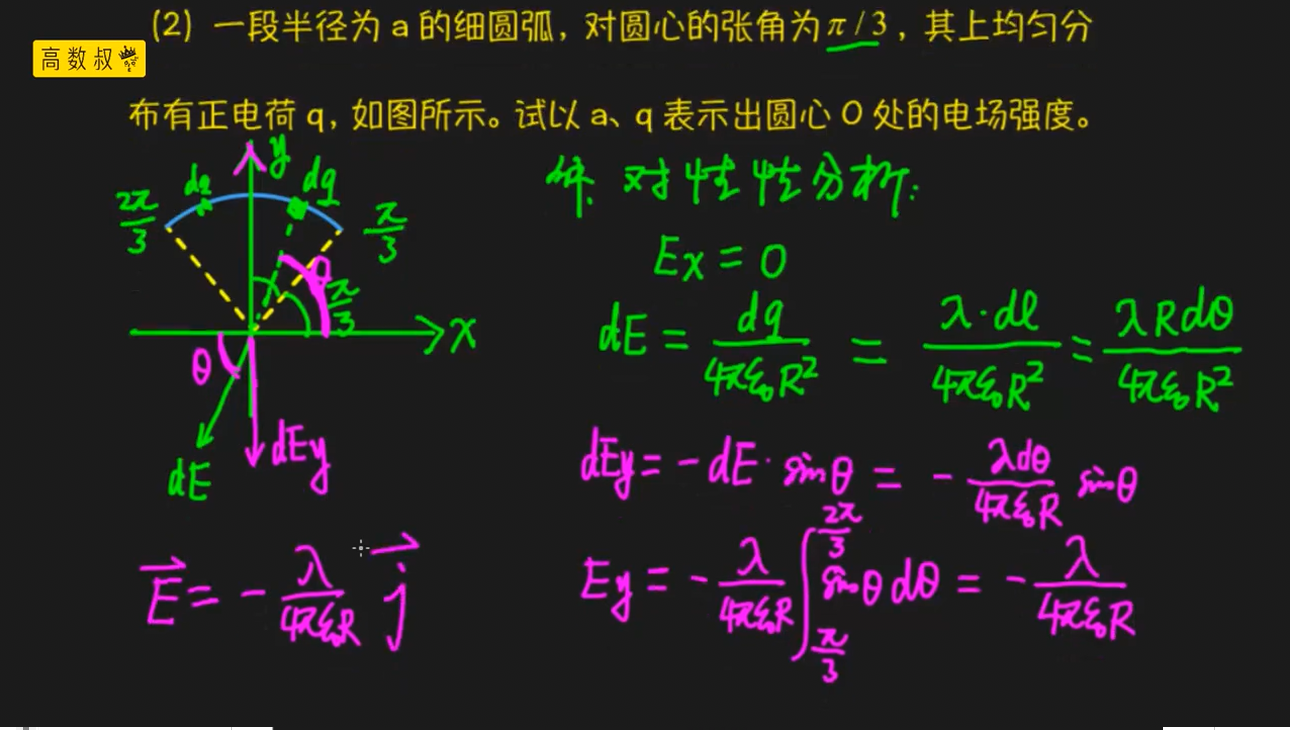 (2) 一段半径为 a 的细圆弧，对圆心的张角为 π/3，其上均匀分
高数叔
布有正电荷 q，如图所示。试以 a、q 表示出圆心 O 处的电场强度。
y
dq
dq
2π/3
π/3
π/3
θ
x
θ
dE
dEy
解. 对性性分析:
Ex = 0
dE = dq/4πε₀R² = λ·dl/4πε₀R² = λRdθ/4πε₀R²
dEy = -dE·sinθ = - λdθ/4πε₀R sinθ
Ey = - λ/4πε₀R ∫_{π/3}^{2π/3} sinθ dθ = - λ/4πε₀R
E⃗ = - λ/4πε₀R j⃗